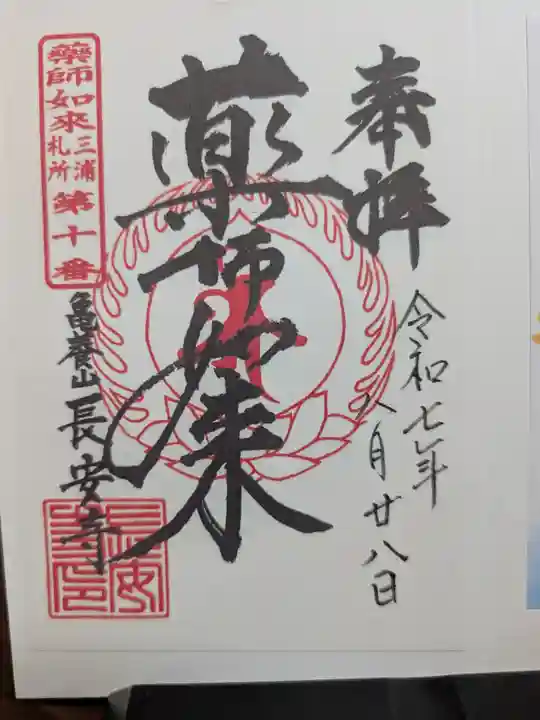 奉拝
令和七年
八月廿八日
薬師如来
藥師如來三浦札所第十番
亀養山長安寺